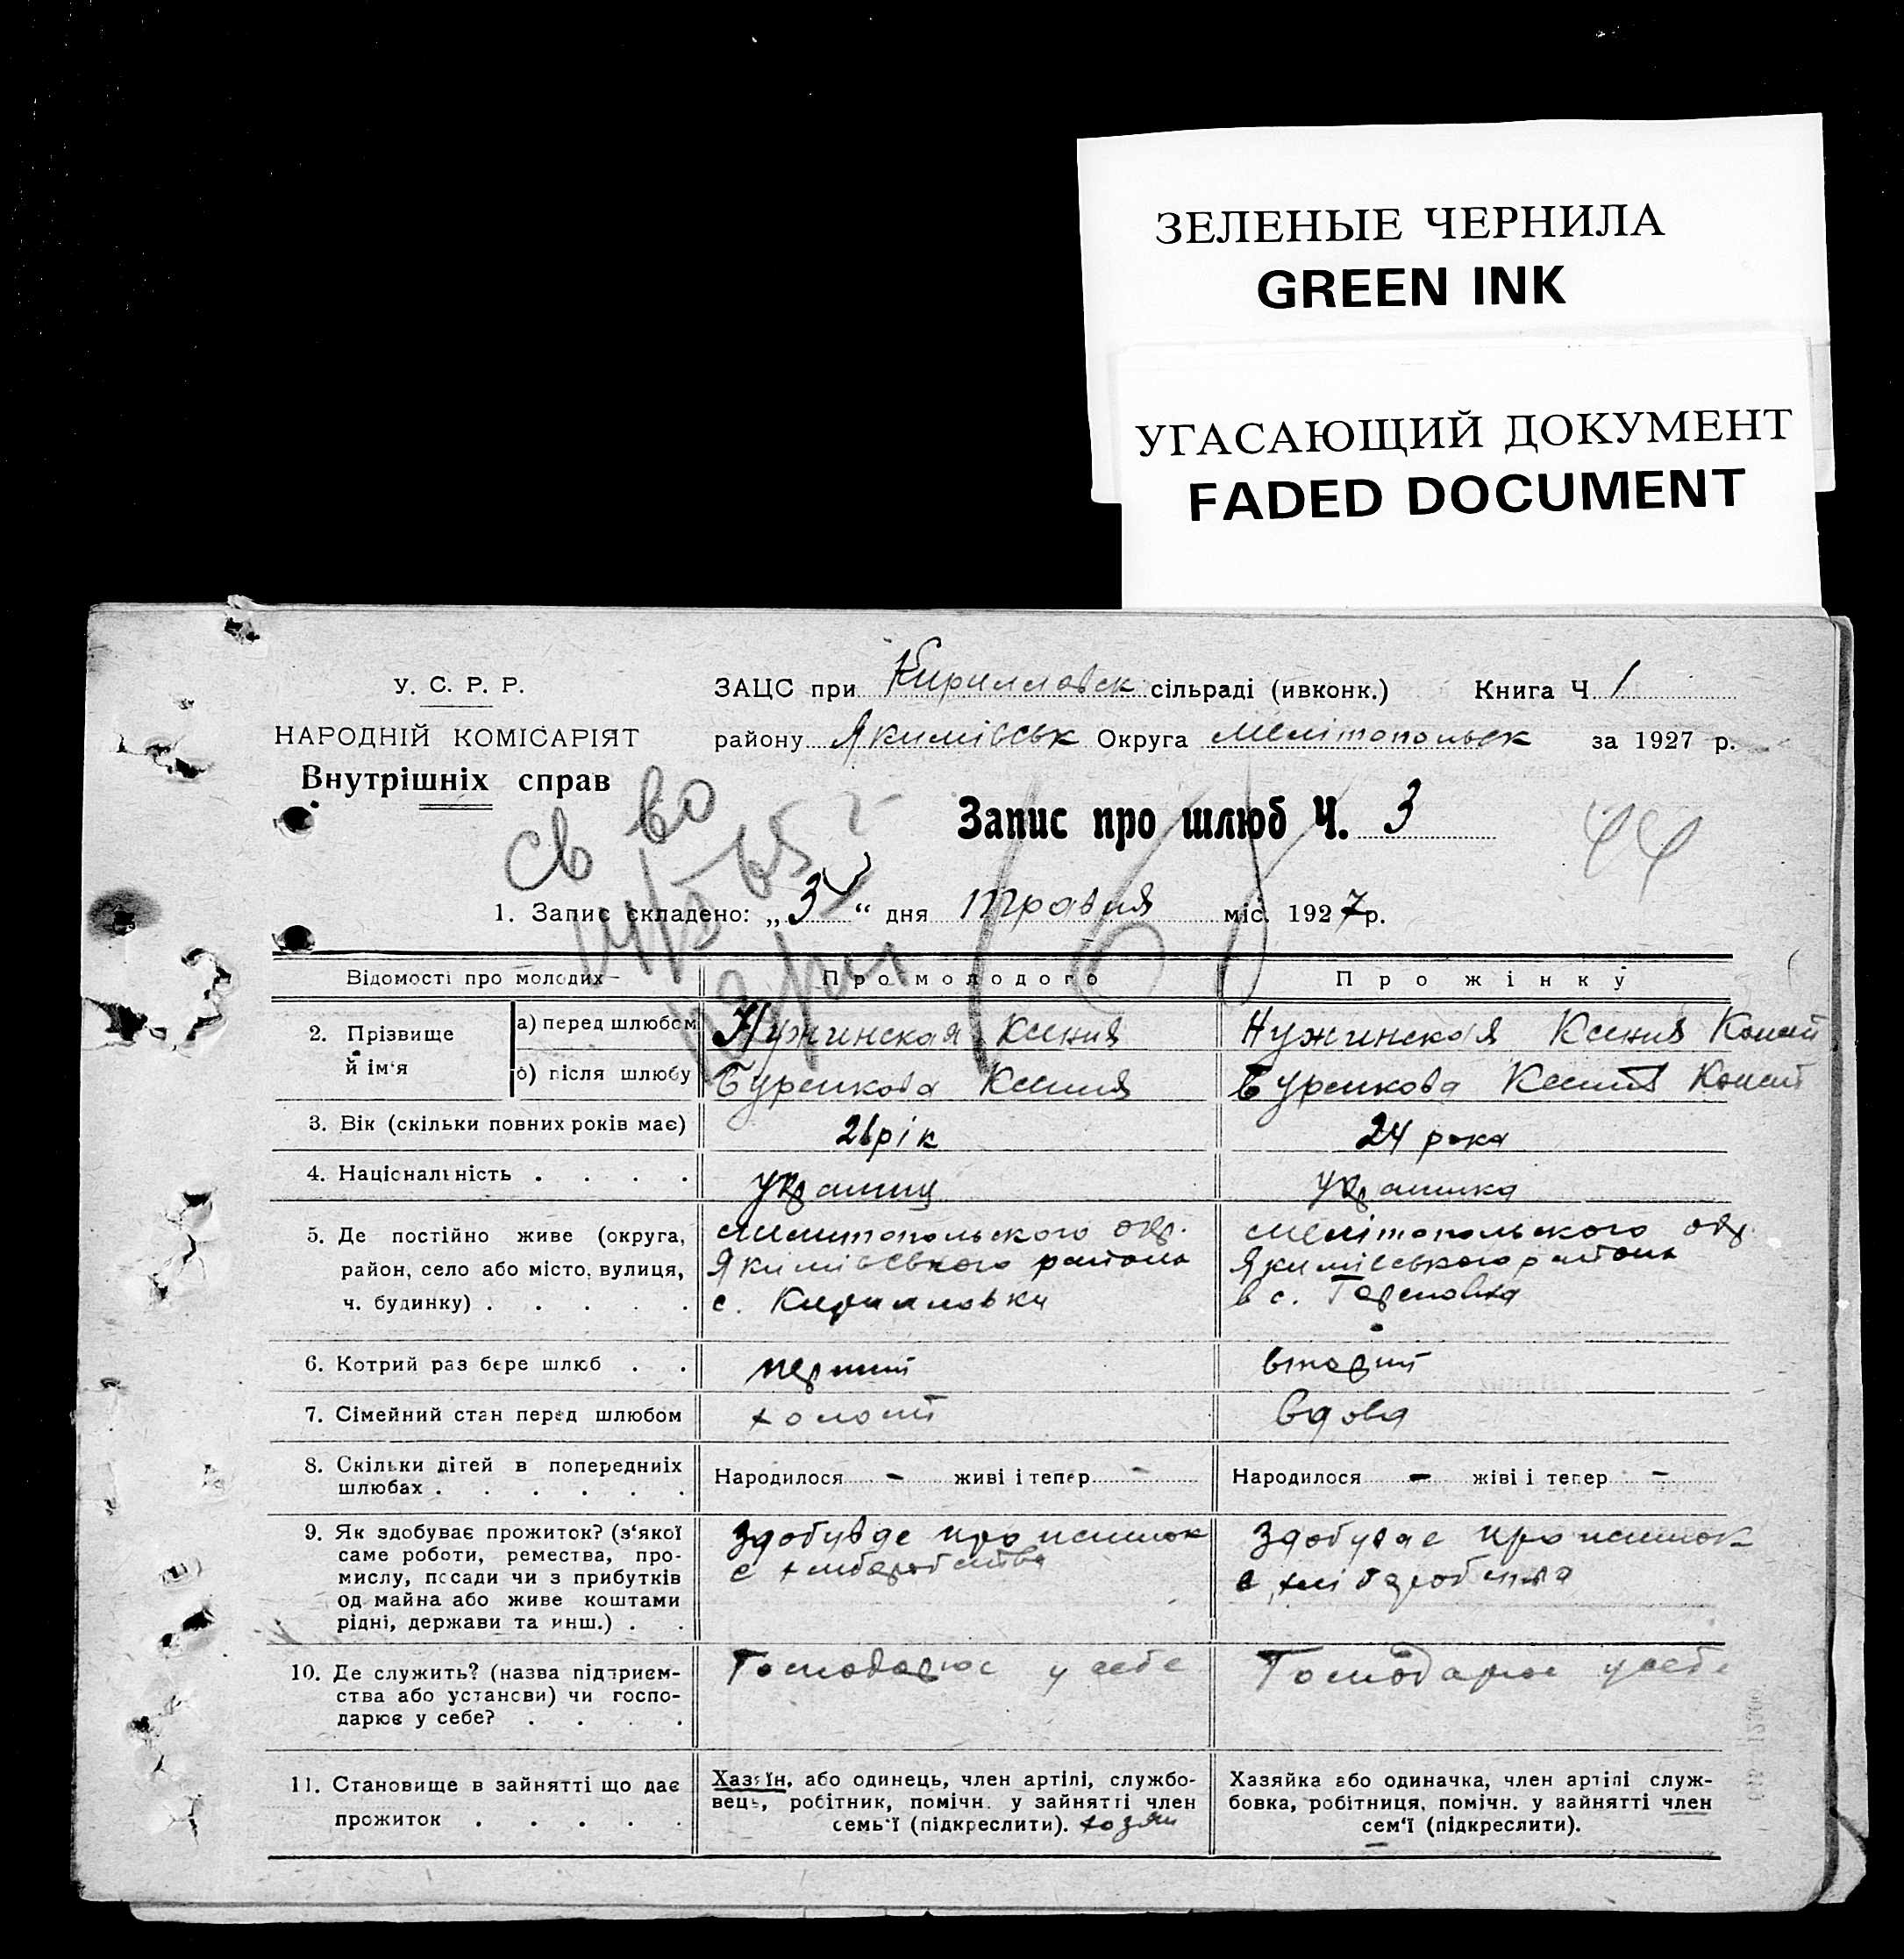 ЗЕЛЕНЫЕ ЧЕРНИЛА
GREEN INK
УГАСАЮЩИЙ ДОКУМЕНТ
FADED DOCUMENT
У. С. Р. Р.
НАРОДНІЙ КОМІСАРІЯТ
Внутрішніх справ
ЗАЦС при Кирилловск сільраді (ивконк.) Книга Ч 1
району Якимівськ Округа Мелітопольск за 1927 р.
Запис про шлюб Ч. 3
44
св во
1. Запис складено: „3“ дня травня міс. 1927 р.
Відомості про молодих Про молодого Про жінку
2. Прізвище й ім'я
а) перед шлюбом Нужинская Ксения Нужинская Ксения
б) після шлюбу Бурликова Ксения Бурликова Ксения
3. Вік (скільки повних років має) 21 рік 24 рока
4. Національність . . . . українц українка
5. Де постійно живе (округа, район, село або місто, вулиця, ч. будинку) . . . . .
Мелитопольского окр.
Якимівського района
с. Кирилловки
Мелітопольского окр.
Якимівського района
в с.
6. Котрий раз бере шлюб . . перший вторий
7. Сімейний стан перед шлюбом холост вдова
8. Скільки дітей в попередниіх шлюбах . . . . . .
Народилося - живі і тепер -
Народилося - жіві і тепер -
9. Як здобуває прожиток? (з'якої
саме роботи, ремества, про-
мислу, посади чи з прибутків
од майна або живе коштами
рідні, держави та инш.) . .
Здобувае прожиток
с хлібаробства
Здобувае прожиток
с хлібаробства
10. Де служить? (назва підприєм-
ства або установи) чи госпо-
дарює у себе? . . . .
Господарює у себе
Господарює у себе
11. Становище в зайнятті що дає
прожиток . . . . .
Хазяїн, або одинець, член артілі, службо-
вець, робітник, помічн. у зайнятті член
семь'ї (підкреслити). хозяин
Хазяйка або одиначка, член артілі служ-
бовка, робітниця, помічн. у зайнятті член
сем'ї (підкреслити).